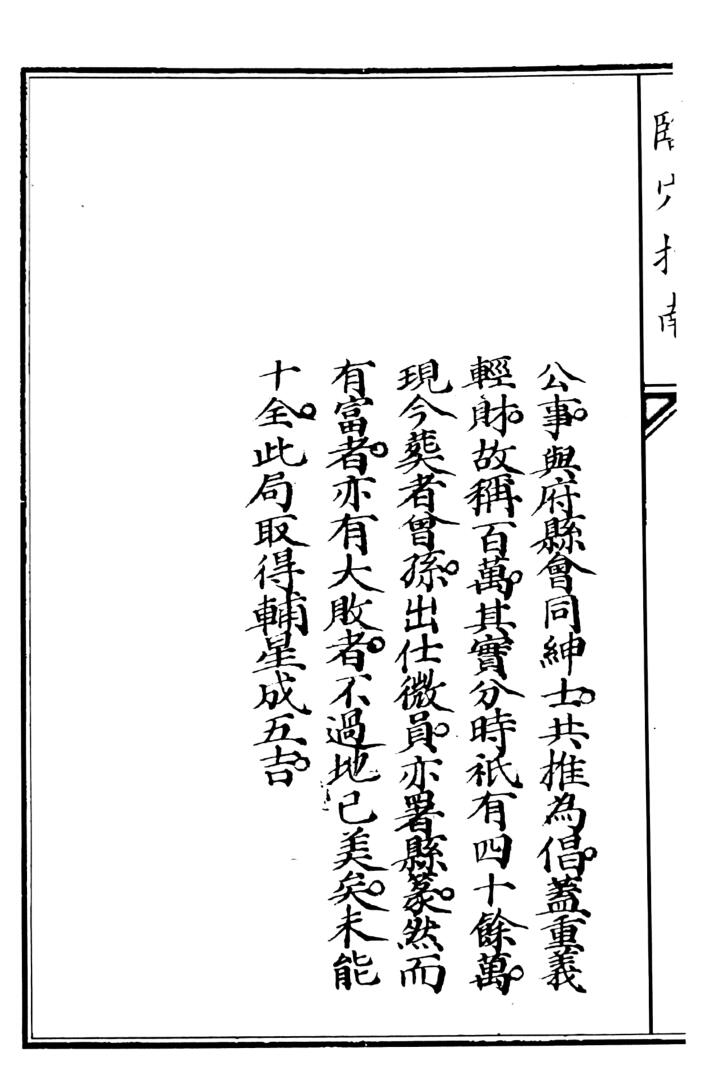 臨穴指南
公事。與府縣會同紳士。共推為倡。蓋重義
輕財。故稱百萬。其實分時祇有四十餘萬。
現今葬者曾孫。出仕微員。亦署縣篆。然而
有富者。亦有大敗者。不過地已美矣。未能
十全。此局取得輔星成五吉。